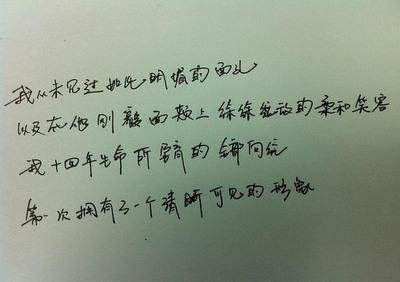 我从未见过如此明媚的面孔
以及在他刚毅面颊上徐徐绽放的柔和笑容
我十四年生命所孕育的全部向往
第一次拥有了一个清晰可见的形象